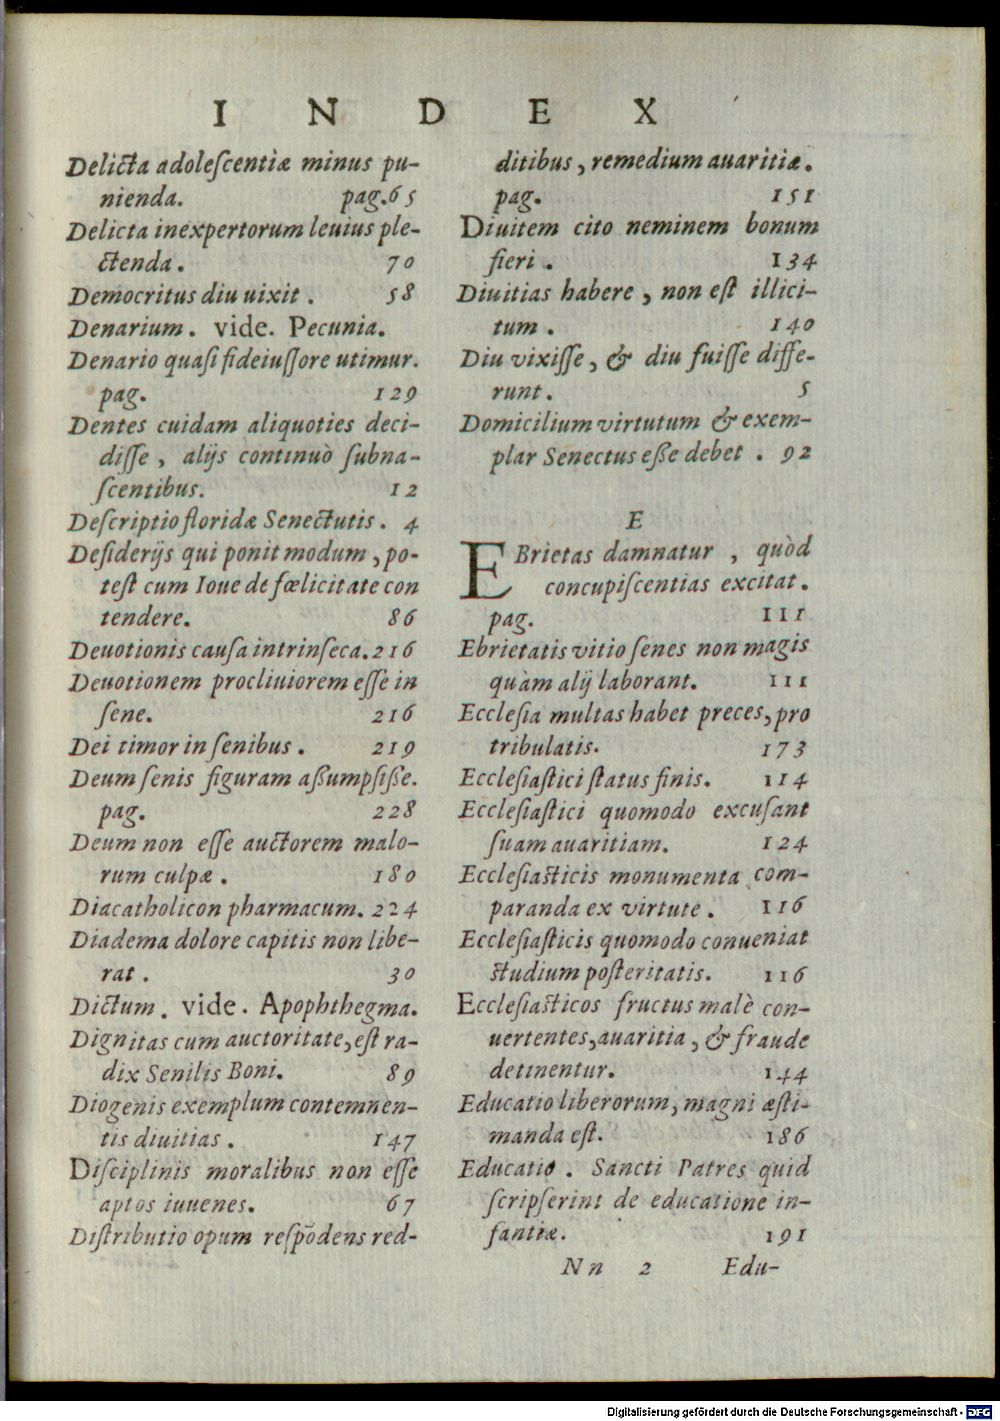 INDEX
Delicta adoleſcentiæ minus pu-
nienda. pag.65
Delicta inexpertorum leuius ple-
ctenda. 70
Democritus diu uixit. 58
Denarium. vide. Pecunia.
Denario quaſi fideiuſſore utimur.
pag. 129
Dentes cuidam aliquoties deci-
diſſe, alijs continuò ſubna-
ſcentibus. 12
Deſcriptio floridæ Senectutis. 4
Deſiderijs qui ponit modum, po-
teſt cum Ioue de fœlicitate con
tendere. 86
Deuotionis cauſa intrinſeca. 216
Deuotionem procliuiorem eſſe in
ſene. 216
Dei timor in ſenibus. 219
Deum ſenis figuram aßumpſiße.
pag. 228
Deum non eſſe auctorem malo-
rum culpæ. 180
Diacatholicon pharmacum. 224
Diadema dolore capitis non libe-
rat. 30
Dictum. vide. Apophthegma.
Dignitas cum auctoritate, eſt ra-
dix Senilis Boni. 89
Diogenis exemplum contemnen-
tis diuitias. 147
Diſciplinis moralibus non eſſe
aptos iuuenes. 67
Diſtributio opum reſpōdens red-
ditibus, remedium auaritiæ.
pag. 151
Diuitem cito neminem bonum
fieri. 134
Diuitias habere, non eſt illici-
tum. 140
Diu vixiſſe, & diu fuiſſe diffe-
runt. 5
Domicilium virtutum & exem-
plar Senectus eße debet. 92
E
EBrietas damnatur, quòd
concupiſcentias excitat.
pag. 111
Ebrietatis vitio ſenes non magis
quàm alij laborant. 111
Eccleſia multas habet preces, pro
tribulatis. 173
Eccleſiaſtici ſtatus finis. 114
Eccleſiaſtici quomodo excuſant
ſuam auaritiam. 124
Eccleſiaſticis monumenta com-
paranda ex virtute. 116
Eccleſiaſticis quomodo conueniat
ſtudium poſteritatis. 116
Eccleſiaſticos fructus malè con-
uertentes, auaritia, & fraude
detinentur. 144
Educatio liberorum, magni æſti-
manda eſt. 186
Educatio. Sancti Patres quid
ſcripſerint de educatione in-
fantiæ. 191
Nn 2 Edu-
Digitalisierung gefördert durch die Deutsche Forschungsgemeinschaft - DFG